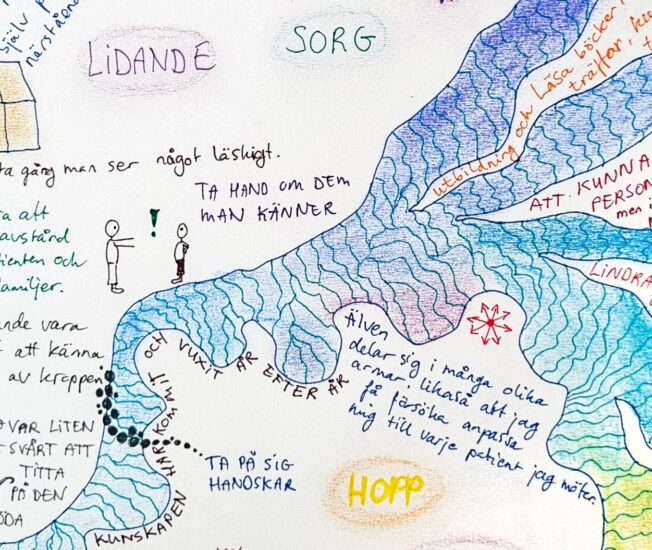 själv p
närstående
LIDANDE
SORG
utbildning och Läsa böcker,
träffar,
ta gång man ser något läskigt.
TA HAND OM DEM
MAN KÄNNER
ATT. KUNNA
PERSON
men i
LINDRA
ra att
avstånd
tienten och
familjer.
!
ande vara
att känna
av kroppen
VAR LITEN
SVÅRT ATT
TITTA
PÅ DEN
ÖDA
KUNSKAPEN HAR KOMMIT OCH VUXIT ÅR EFTER ÅR
Älven
delar sig i många olika
armar, likaså att jag
få försöka anpassa
mig till varje patient jag möter.
TA PÅ SIG
HANDSKAR
HOPP